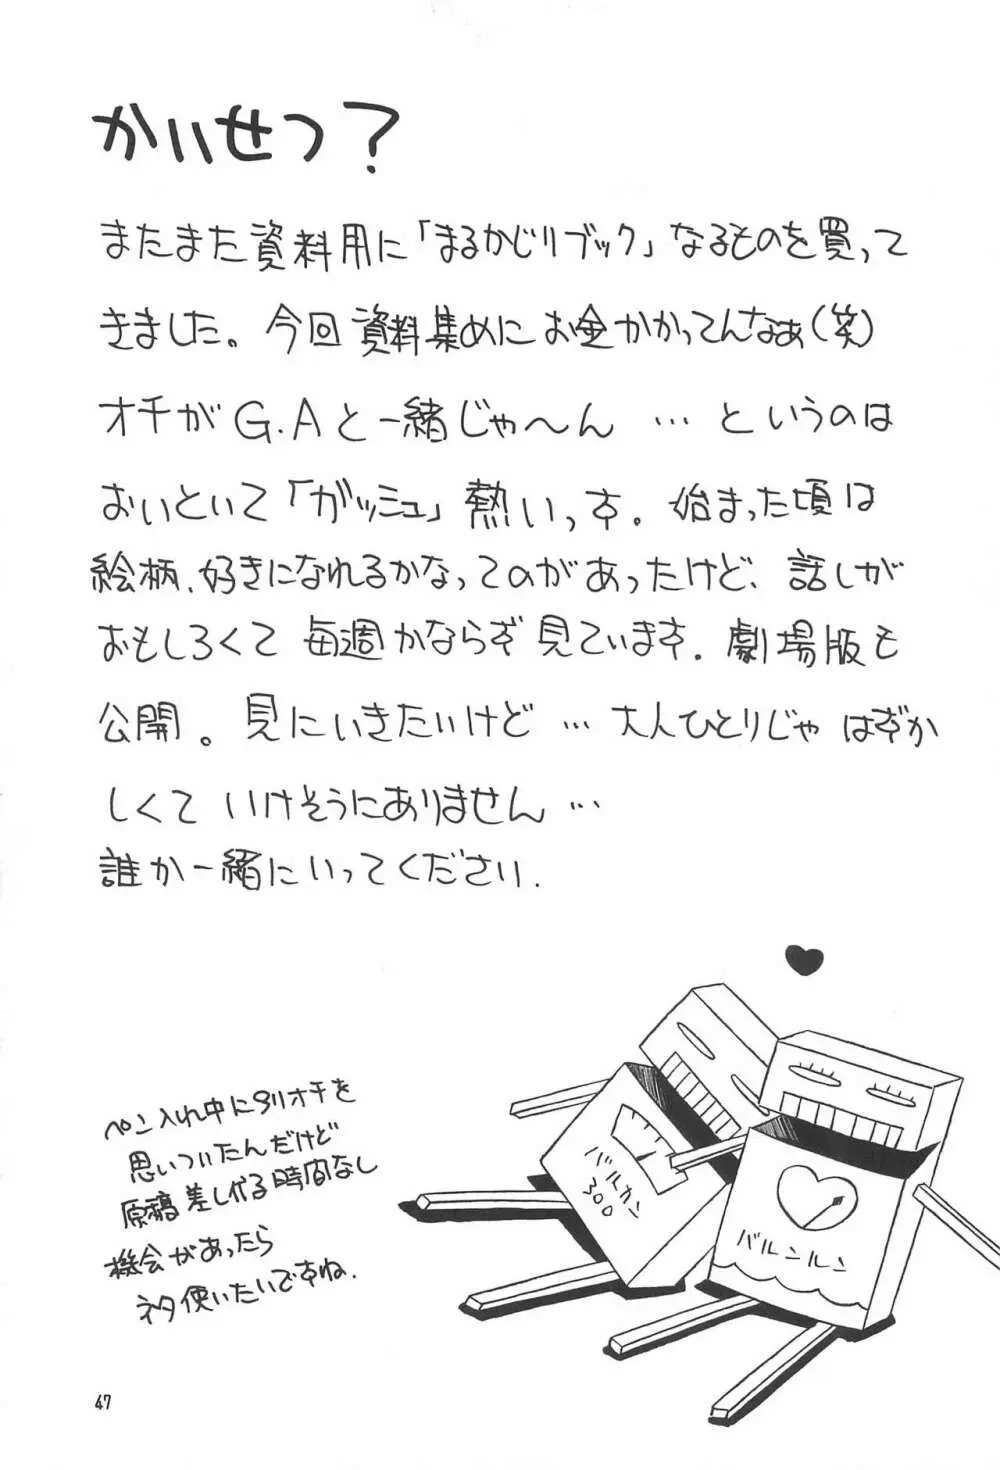 かいせつ?
またまた資料用に「まるかじりブック」なるものを買って
きました。今回資料集めにお金かかってんなぁ(笑)
オチがG.Aと一緒じゃ〜ん…というのは
おいといて「ガッシュ」熱いっす。始まった頃は
絵柄、好きになれるかなってのがあったけど、話しが
おもしろくて毎週かならず見ています。劇場版も
公開。見にいきたいけど…大人ひとりじゃはずか
しくていけそうにありません…
誰か一緒にいってください.
ペン入れ中に別オチを
思いついたんだけど
原稿差しかえる時間なし
機会があったら
ネタ使いたいですね.
バルカン
300
バルンルン
47